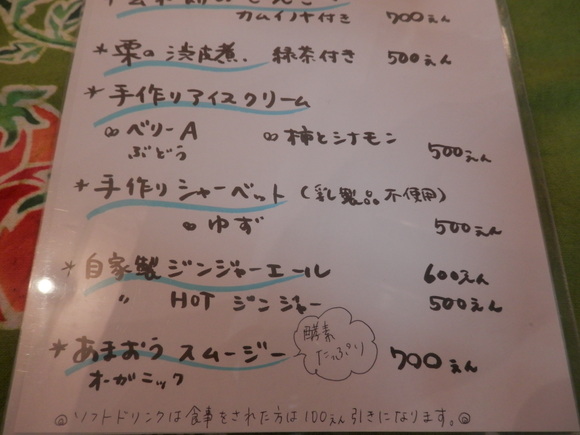 カムイノキ付き 700えん
*栗の渋皮煮. 緑茶付き 500えん
*手作りアイスクリーム
∞ベリーA ∞柿とシナモン
ぶどう 500えん
*手作りシャーベット (乳製品不使用)
∞ゆず 500えん
*自家製ジンジャーエール 600えん
〃 HOT ジンジャー 500えん
*あまおう スムージー 酵素たっぷり 700えん
オーガニック
◎ソフトドリンクは食事をされた方は100えん引きになります。◎